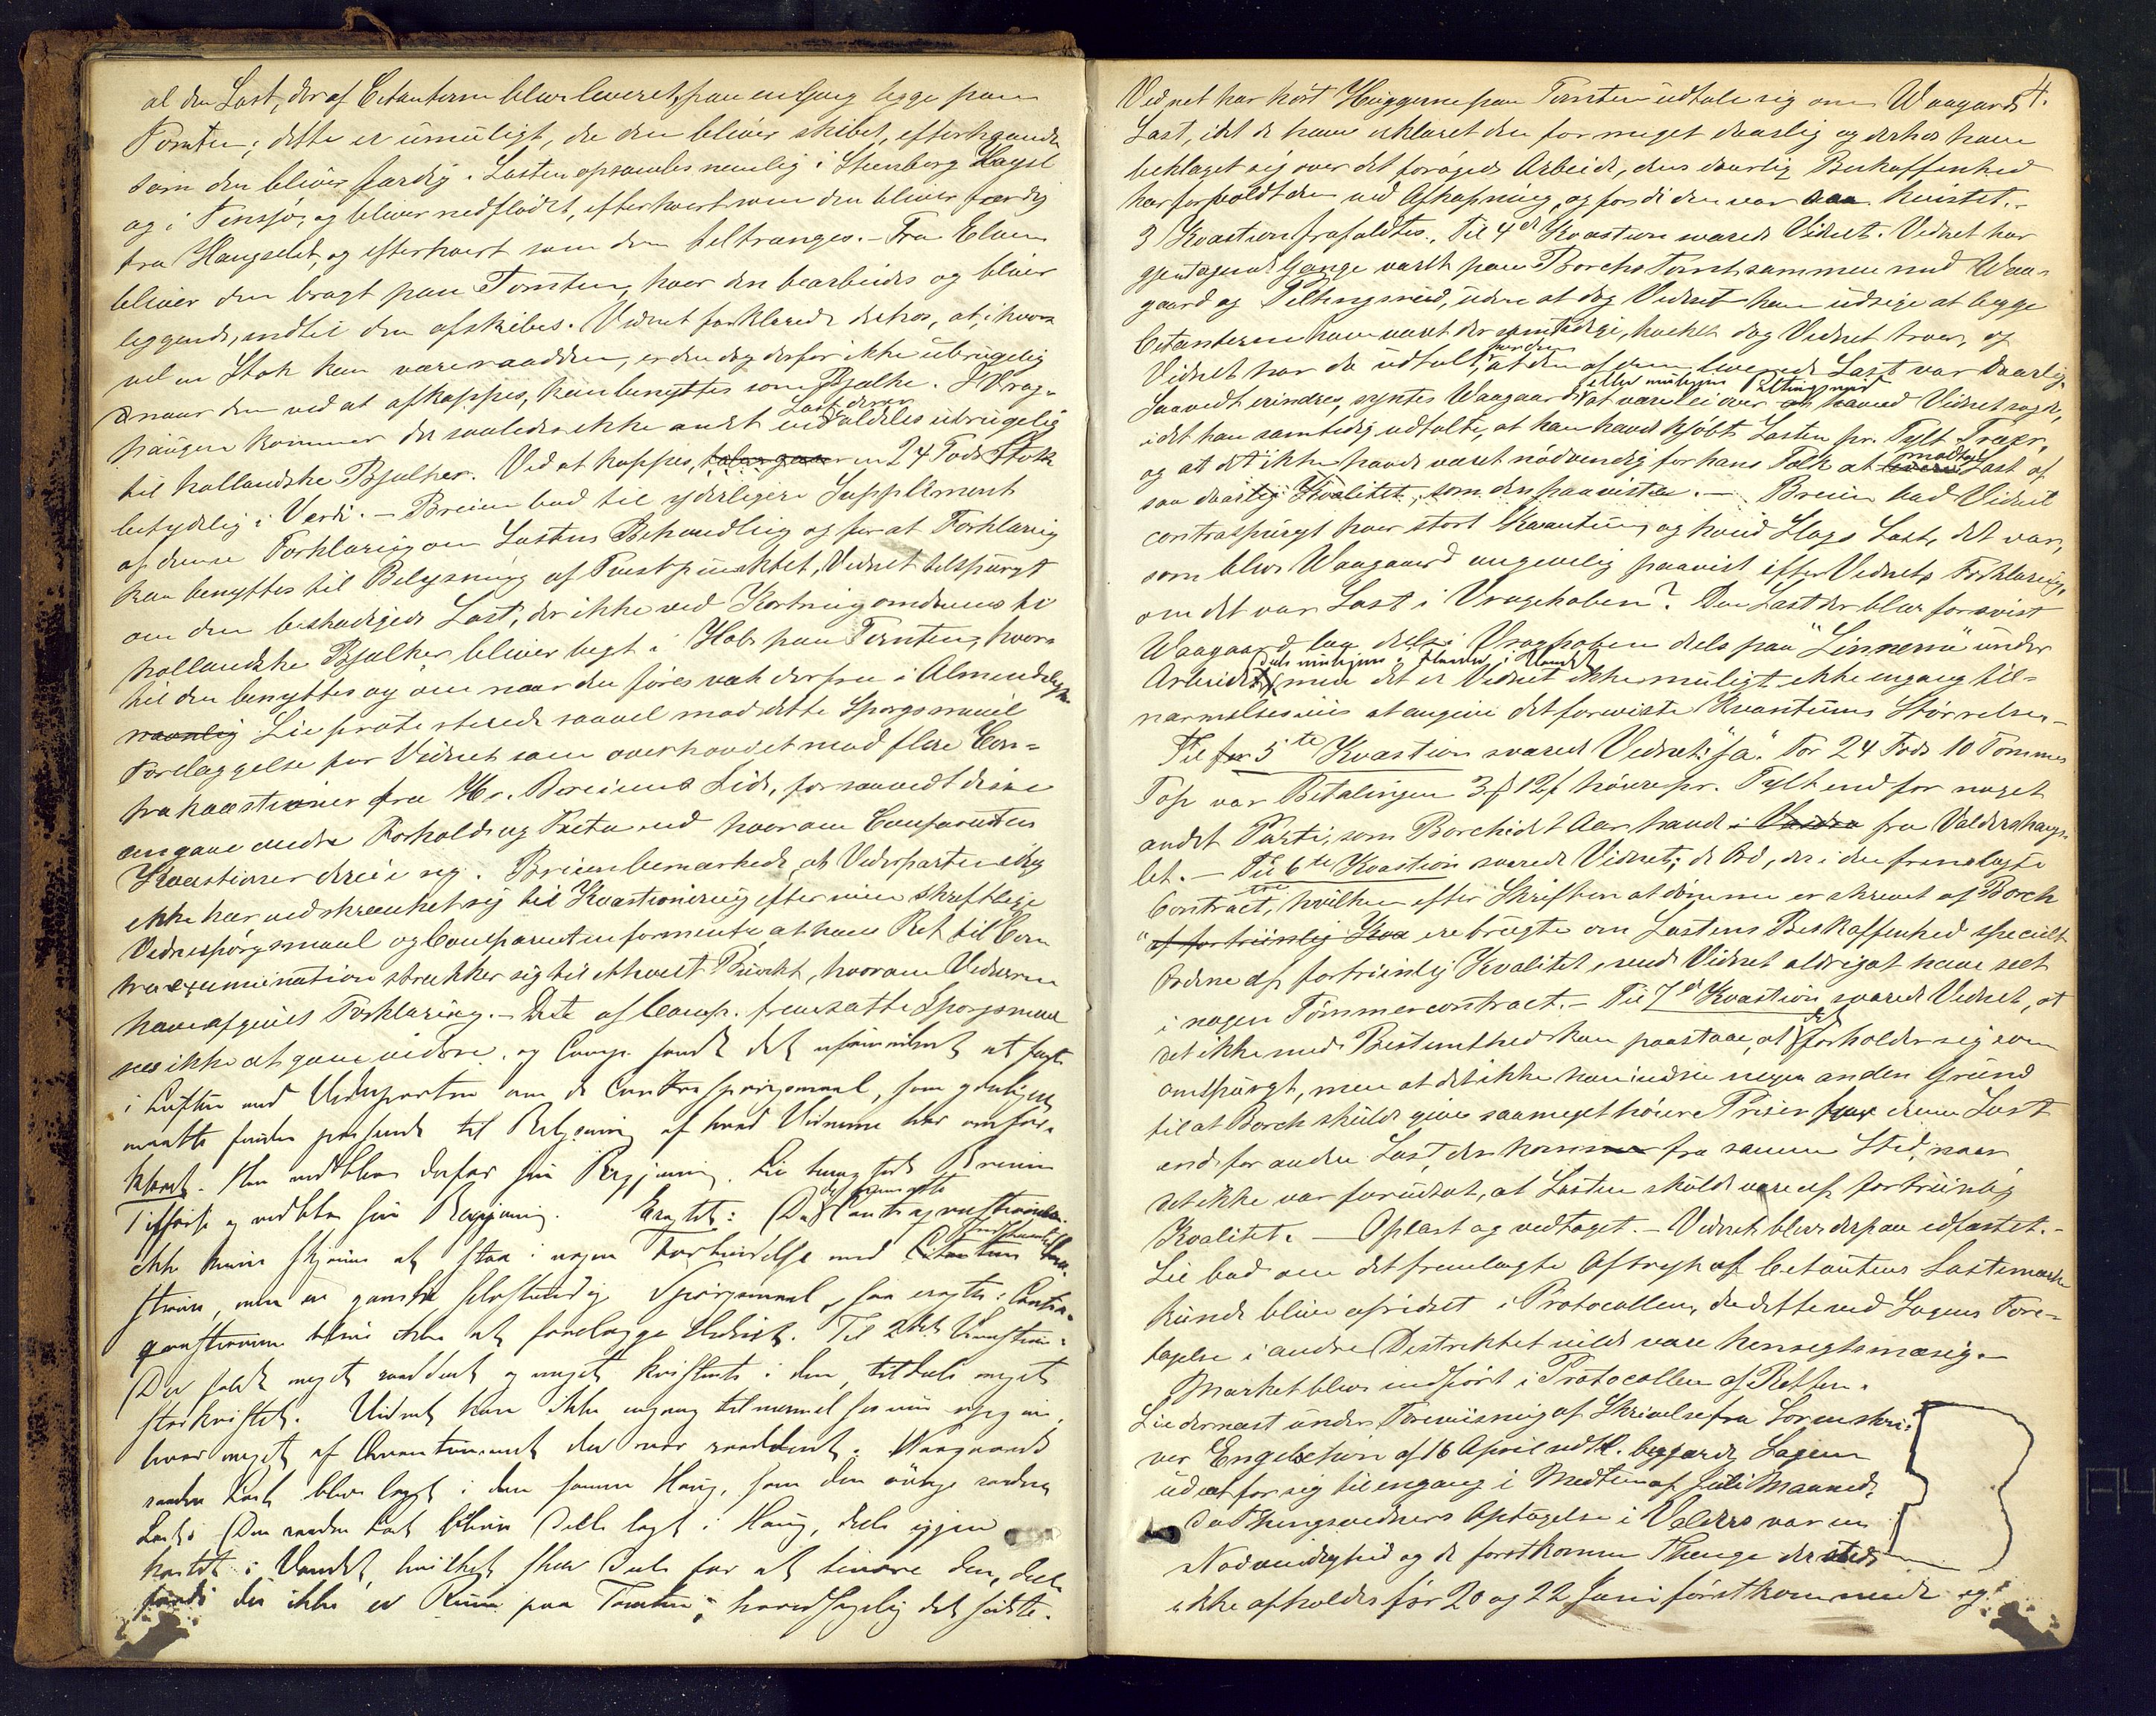 al den Last, der af Citanterne blev leveret, paa en Gang ligge paa
Tomten; dette er umuligt, da den bliver skibet, efterhaanden
som den bliver færdig. Lasten opsamles nemlig i Steenberg
og i Tensjø, og bliver nedflödet, efterhvert som den bliver færdig
fra Haugselet, og efterhvert som den tiltrænges. – Fra Elven
bliver den bragt paa Tomten, hvor den bearbeides og bliver
liggende, indtil den afskibes. Vidnet forklarede derhos, at, i hvor-
vel en Stok kan være raadden, er den dog derfor ikke ubrugelig
naar den ved at afkappes, kan benyttes som Bjælke. I Vrag-
haugen kommer der saaledes ikke andet end Last der er aldeles ubrugelig
til hollandske Bjælker. Ved at kappes, taber en 24 Fods Stok
betydelig i Verdi. – Breien bad til yderligere Supplement
af denne Forklaring om Lastens Behandling og for at Forklaring
kan benyttes til Belysning af Tvistpunktet, Vidnet tilspurgt
om den beskadigede Last, der ikke ved Kortning omdannes til
hollandske Bjælker bliver lagt i Hob paa Tomten, hvor-
til den benyttes og om naar den föres væk derfra i Almindelig-
Lie protesterede saavel mod dette Spörgsmaal
Forelæggelse for Vidnet som overhovedet mod flere Con-
traqvæstioner fra Hr. Breiens Side, forsaavidt disse
angaae andre Forhold og Facta end hvorom Comparenten
Kvæstioner dreie sig. Breien bemærkede, at Vederparten idag
ikke har indskrænket sig til Kvæstionering efter min skriftlige
Vidnespörgsmaal og Comparenten formente at hans Ret til Con-
traexamination strækker sig til ethvert Punkt, hvorom Vidnerne
have afgivet Forklaring. – Det af Comp. fremsatte Spörgsmaal
sees ikke at gaae videre, og Comp. fandt det ufornödent at
i med Vederparten om de Contraspörgsmaal, som
maatte findes passende til Belysning af hvad Vidnerne har omfor-
klaret. Han vedblev derfor sin Begjæring. Lie Breien
Tilförsel og vedblev sin Begjæring. Eragtet: Da det fremsatte Contraqvæstion
ikke kunne skjönnes at staa i nogen Forbindelse med Citantens
men er ganske selvstændig Spörgsmaal, saa eragtes: Contra-
qvæstionen bliver ikke at forelægge Vidnet. Til 2det Kvæstion:
Der faldt meget raaddent og meget kvistet i den, tildels meget
storkvistet. Vidnet kan ikke engang tilnærmelsesvis opgive,
hvor meget af Qvantummet der var raaddent. Waagaards
raadne Last blev lagt i den samme Haug, som den övrige raadne
Last. Den raadne Last bliver dels lagt i Haug, dels igjen
kastet i Vandet, hvilket skeer dels for at bevare den, dels
fordi der ikke er Rum paa Tomten; hovedsagelig det sidste.
4.
Vidnet har hört Huggerne paa Tomten udtale sig om Waagaards
Last, idet de have erklæret den for meget daarlig og derhos have
beklaget sig over det forögede Arbeide, dens daarlig Beskaffenhed
har forvoldt dem ved Afkapning, og fordi den var saa kvistet. –
3 Kvæstion frafaldtes. Til 4de Kvæstion svarede Vidnet. Vidnet har
gjentagende Gange været paa Borchs Tomt sammen med Waa-
gaard og Peltingsrud, uden at dog Vidnet kan udsige at begge
Citanterne have været der samtidige, hvilket dog Vidnet troer, og
Vidnet har da udtalt for dem, at den af dem leverede Last var daarlig.
Saavidt erindres, syntes Waagaard eller muligens Peltingsrud at være lei over hvad Vidnet sagde,
idet han samtidig udtalte, at han havde kjöbt Lasten pr. Tylt Træer,
og at det ikke havde været nödvendig for hans Folk at modtage Last af
saa daarlig Kvalitet, som den paaviste. – Breien bad Vidnet
contraspurgt hvor stort Kvantum, og hvad Slags Last, det var,
som blev Waagaard angivelig paavist efter Vidnets Forklaring,
om det var Last i Vragehoben? Den Last der blev forevist
Waagaard laa dels i Vraghoben dels paa "Linnerne" under
Arbeidet, dels muligens i Vandet, men det er Vidnet ikke muligt ikke engang til-
nærmelsesvis at angive det foreviste Kvantums Störrelse. –
Til 5te Kvæstion svarede Vidnet: "Ja". For 24 Fods 10 Tommer
Top var Betalingen 3 f 12 f höiere pr. Tylt end for noget
andet Parti, som Borch i det Aar havde i Valdres fra Valdershaug-
let. – Til 6te Kvæstion svarede Vidnet; de Ord, der i den fremlagte
Contract, hvilken efter Skriften at dömme er skrevet af Borch
"af fortrinlig Kva ere brugte om Lastens Beskaffenhed specielt
Ordene af fortrinlig Kvalitet, sende Vidnet aldrig at have seet
i nogen Tömmercontract. – Til 7de Kvæstion svarede Vidnet, at
det ikke med Bestemthed kan paastaae, at det forholder sig som
omspurgt, men at det ikke kan indsee nogen anden Grund
til at Borch skulde give saameget höiere Priser for denne Last
end for anden Last, der kommer fra samme Sted, naar
det ikke var forudsat, at Lasten skulde være af fortrinlig
Kvalitet. – Oplæst og vedtaget. – Vidnet blev derpaa edfæstet. –
Lie bad om det fremlagte Aftryk af Citantens Lastemærke
kunde blive afridset i Protocollen, da dette ved Sagens Fore-
tagelse i andre Distriktet vilde være hensigtsmæsig. –
Mærket blev indfört i Protocollen af Retten.
Lie dernæst under Foreviisning af Skrivelse fra Sorenskri-
ver Engelschiøn af 16 April sidstl. begjærede Sagen
udsat for sig til engang i Medten af Juli Maaned,
da Thingsvidners Optagelse i Valdres var en
Nödvendighed og de förstkomne Thinge der steds
ikke afholdes för 20 og 22 Juni förstkommende og